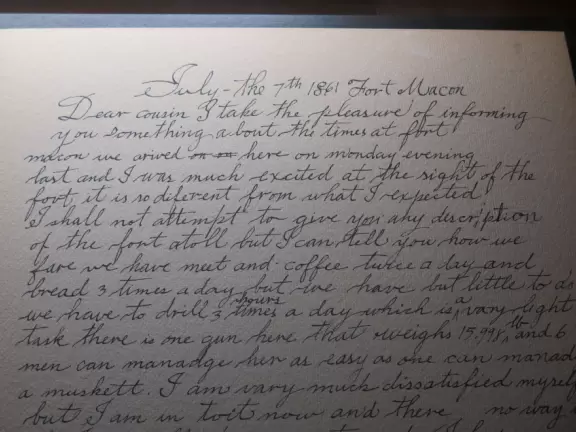 July - the 7th 1861 Fort Macon
Dear cousin I take the pleasure of informing
you something about the times at fort
macon we arived on on here on monday evening
last and I was much excited at the sight of the
foot, it is so diferent from what I expected
I shall not attempt to give you any description
of the fort atoll but I can tell you how we
fare we have meet and coffee twice a day and
bread 3 times a day but we have but little to do
hours
we have to drill 3 times a day which is a vary light
task there is one gun here that weighs 15.998 lb and 6
men can manadge her as easy as one can manad
a muskett. I am vary much dissatisfied myself
but I am in now and there no way